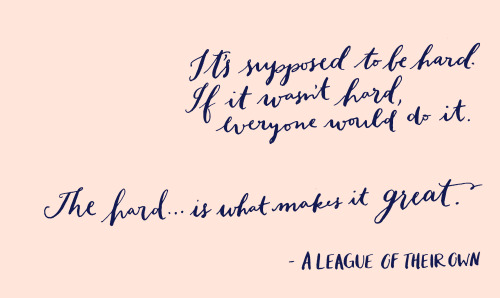 It's supposed to be hard.
If it wasn't hard,
everyone would do it.
The hard... is what makes it great.
- A LEAGUE OF THEIR OWN